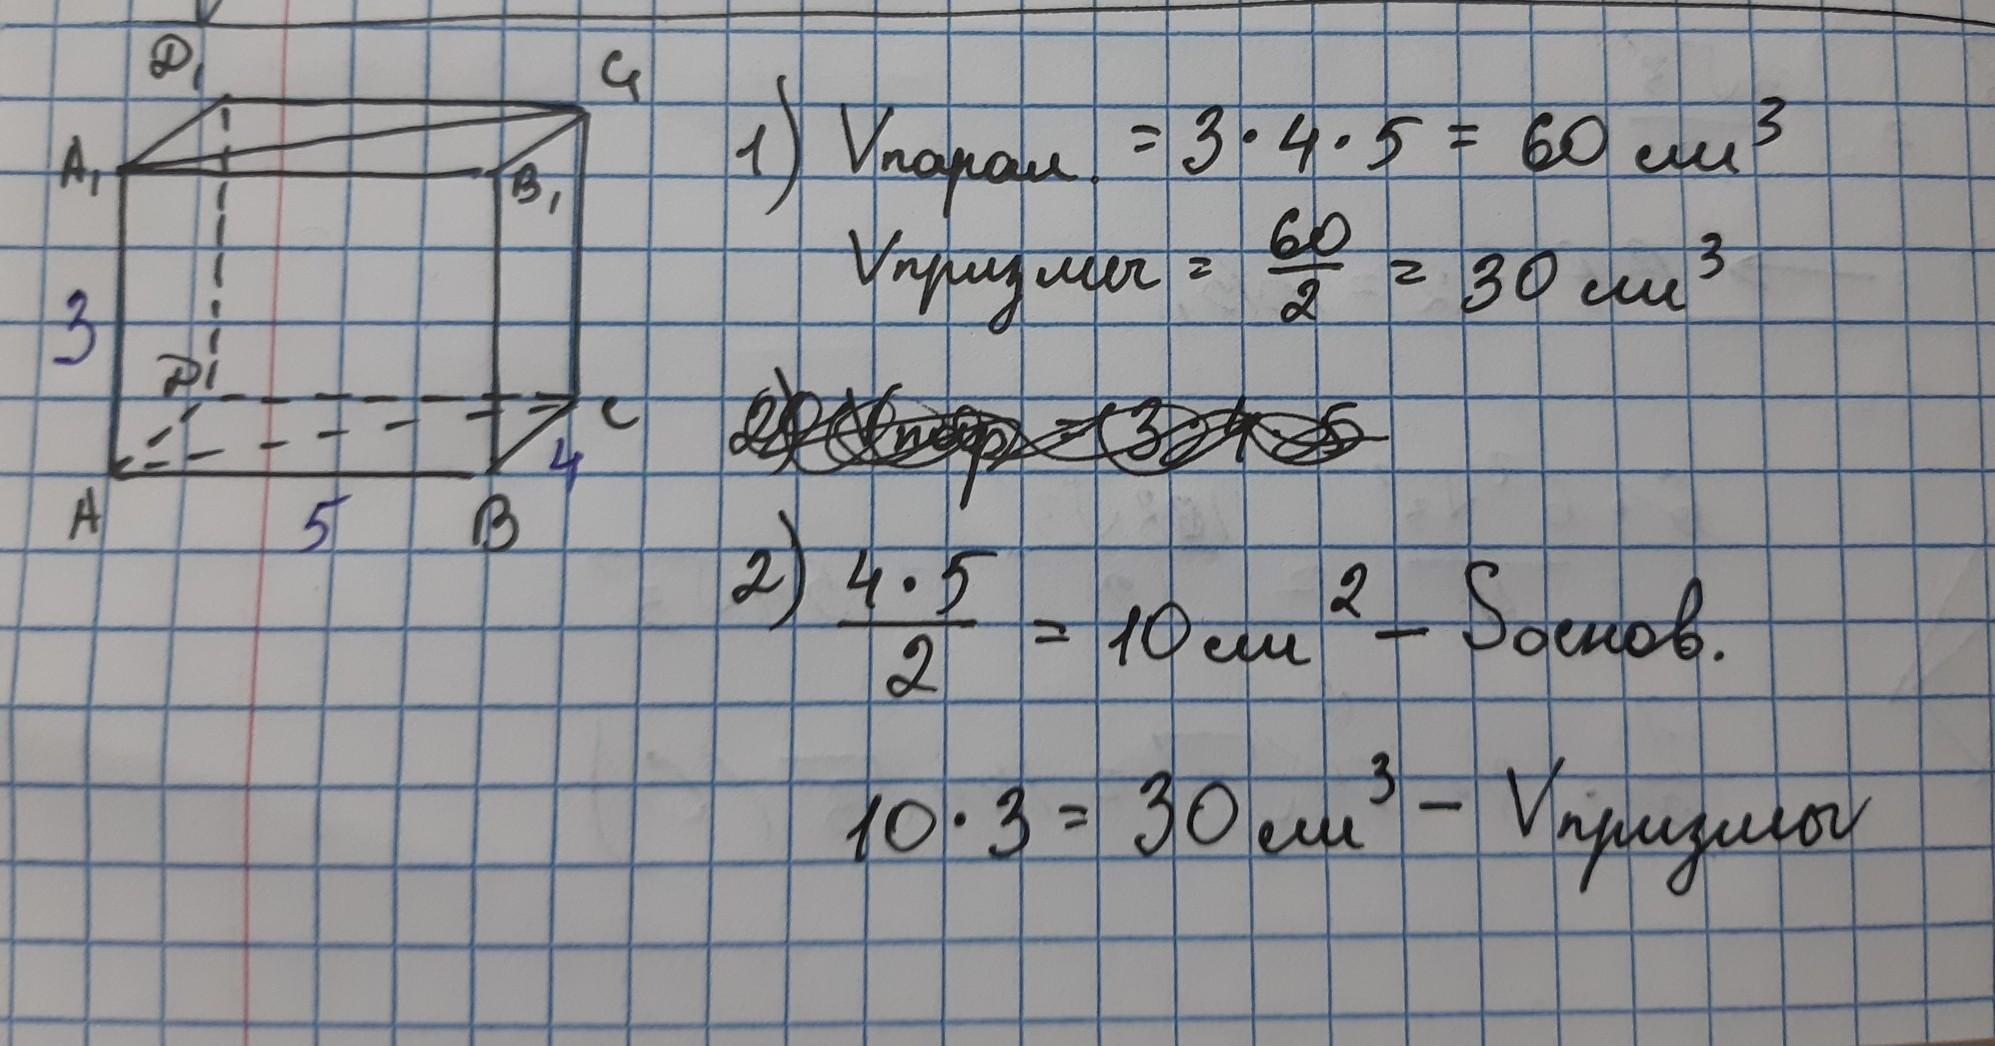 D₁ C₁
A₁ B₁
3
D C
4
A 5 B
1) Vпарал. = 3 · 4 · 5 = 60 см³
Vпризмы = 60/2 = 30 см³
2) Vпар = 3 · 4 · 5
2) 4 · 5/2 = 10 см² – Sоснов.
10 · 3 = 30 см³ – Vпризмы